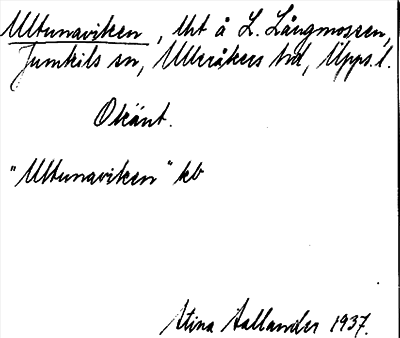 Ultunaviken, Uht å L. Långmossen,
Jumkils sn, Ulleråkers hd, Upps. l.
Okänt.
"Ultunaviken" kb
Stina Aallander 1937.